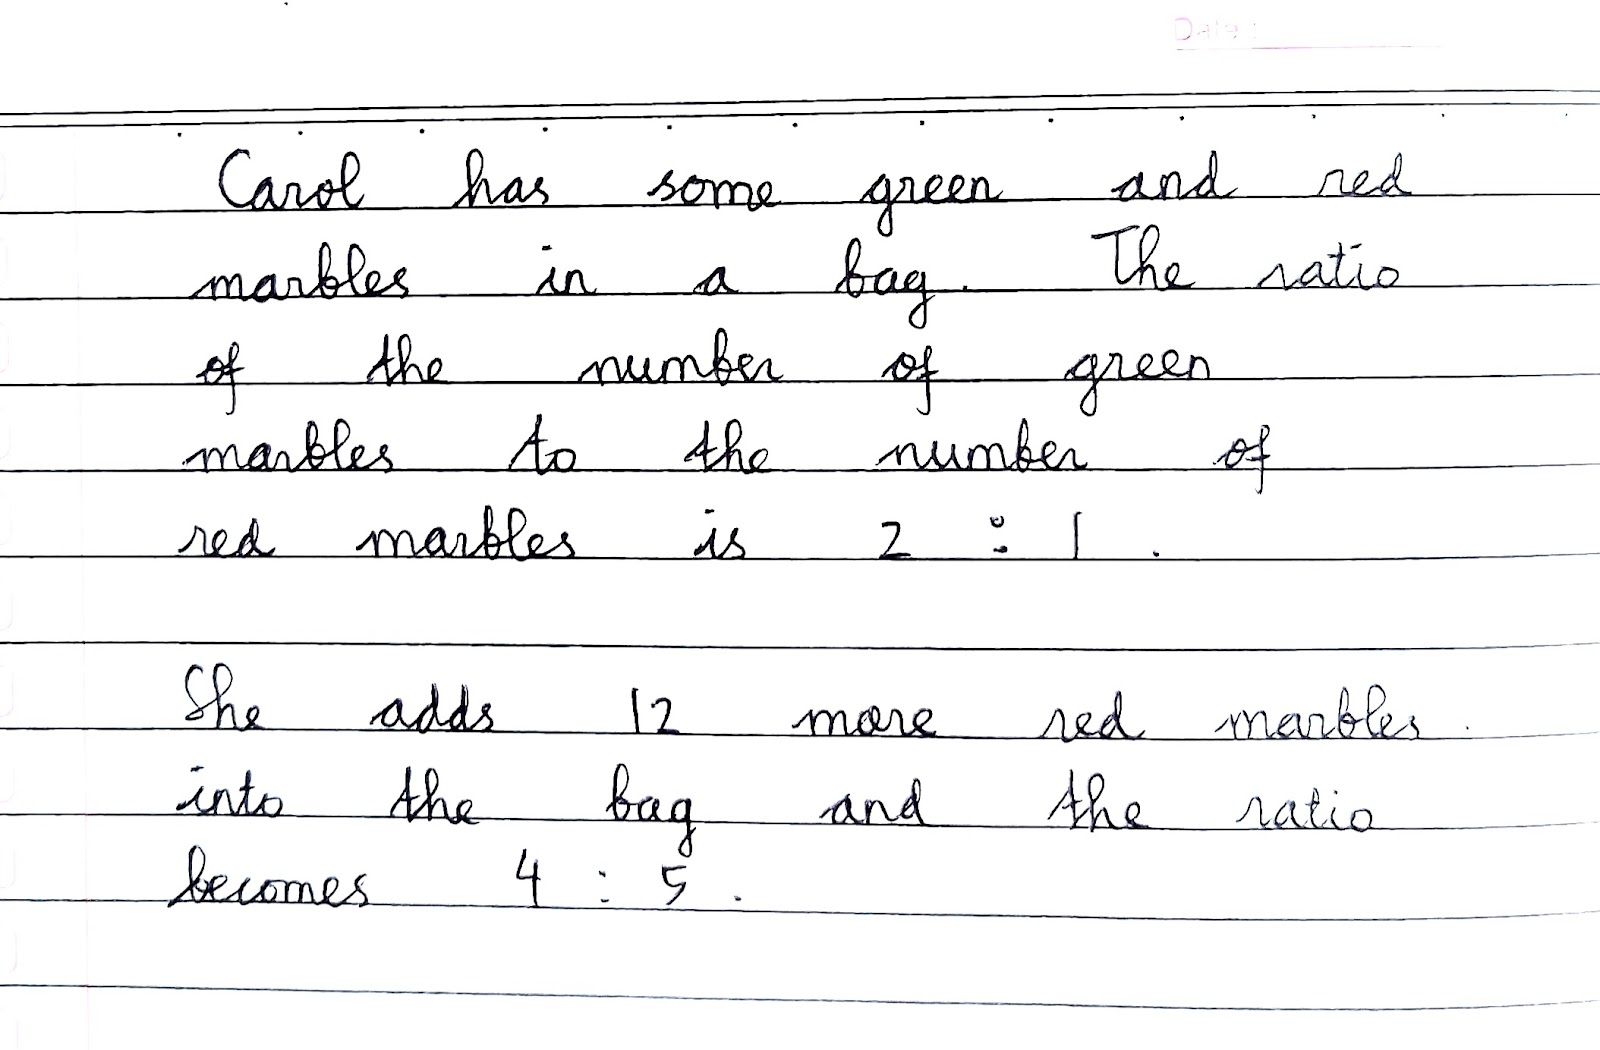 Date :
Carol has some green and red
marbles in a bag. The ratio
of the number of green
marbles to the number of
red marbles is 2 : 1 .
She adds 12 more red marbles.
into the bag and the ratio
becomes 4 : 5 .